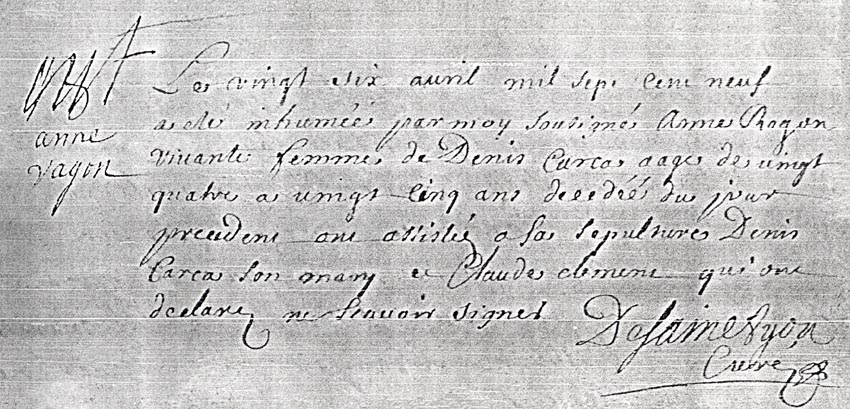 anne
ragon
Le vingt six avril mil sept cent neuf
a eté inhumée par moy sousiné Anne Ragon
vivante femme de Denis Carca aage de vingt
quatre a vingt cinq ans decedée du jour
precedent ont assistés a sa sepulture Denis
Carca son mary et Claude clement qui ont
declarez ne scavoir signer
Desainelyon
Curé